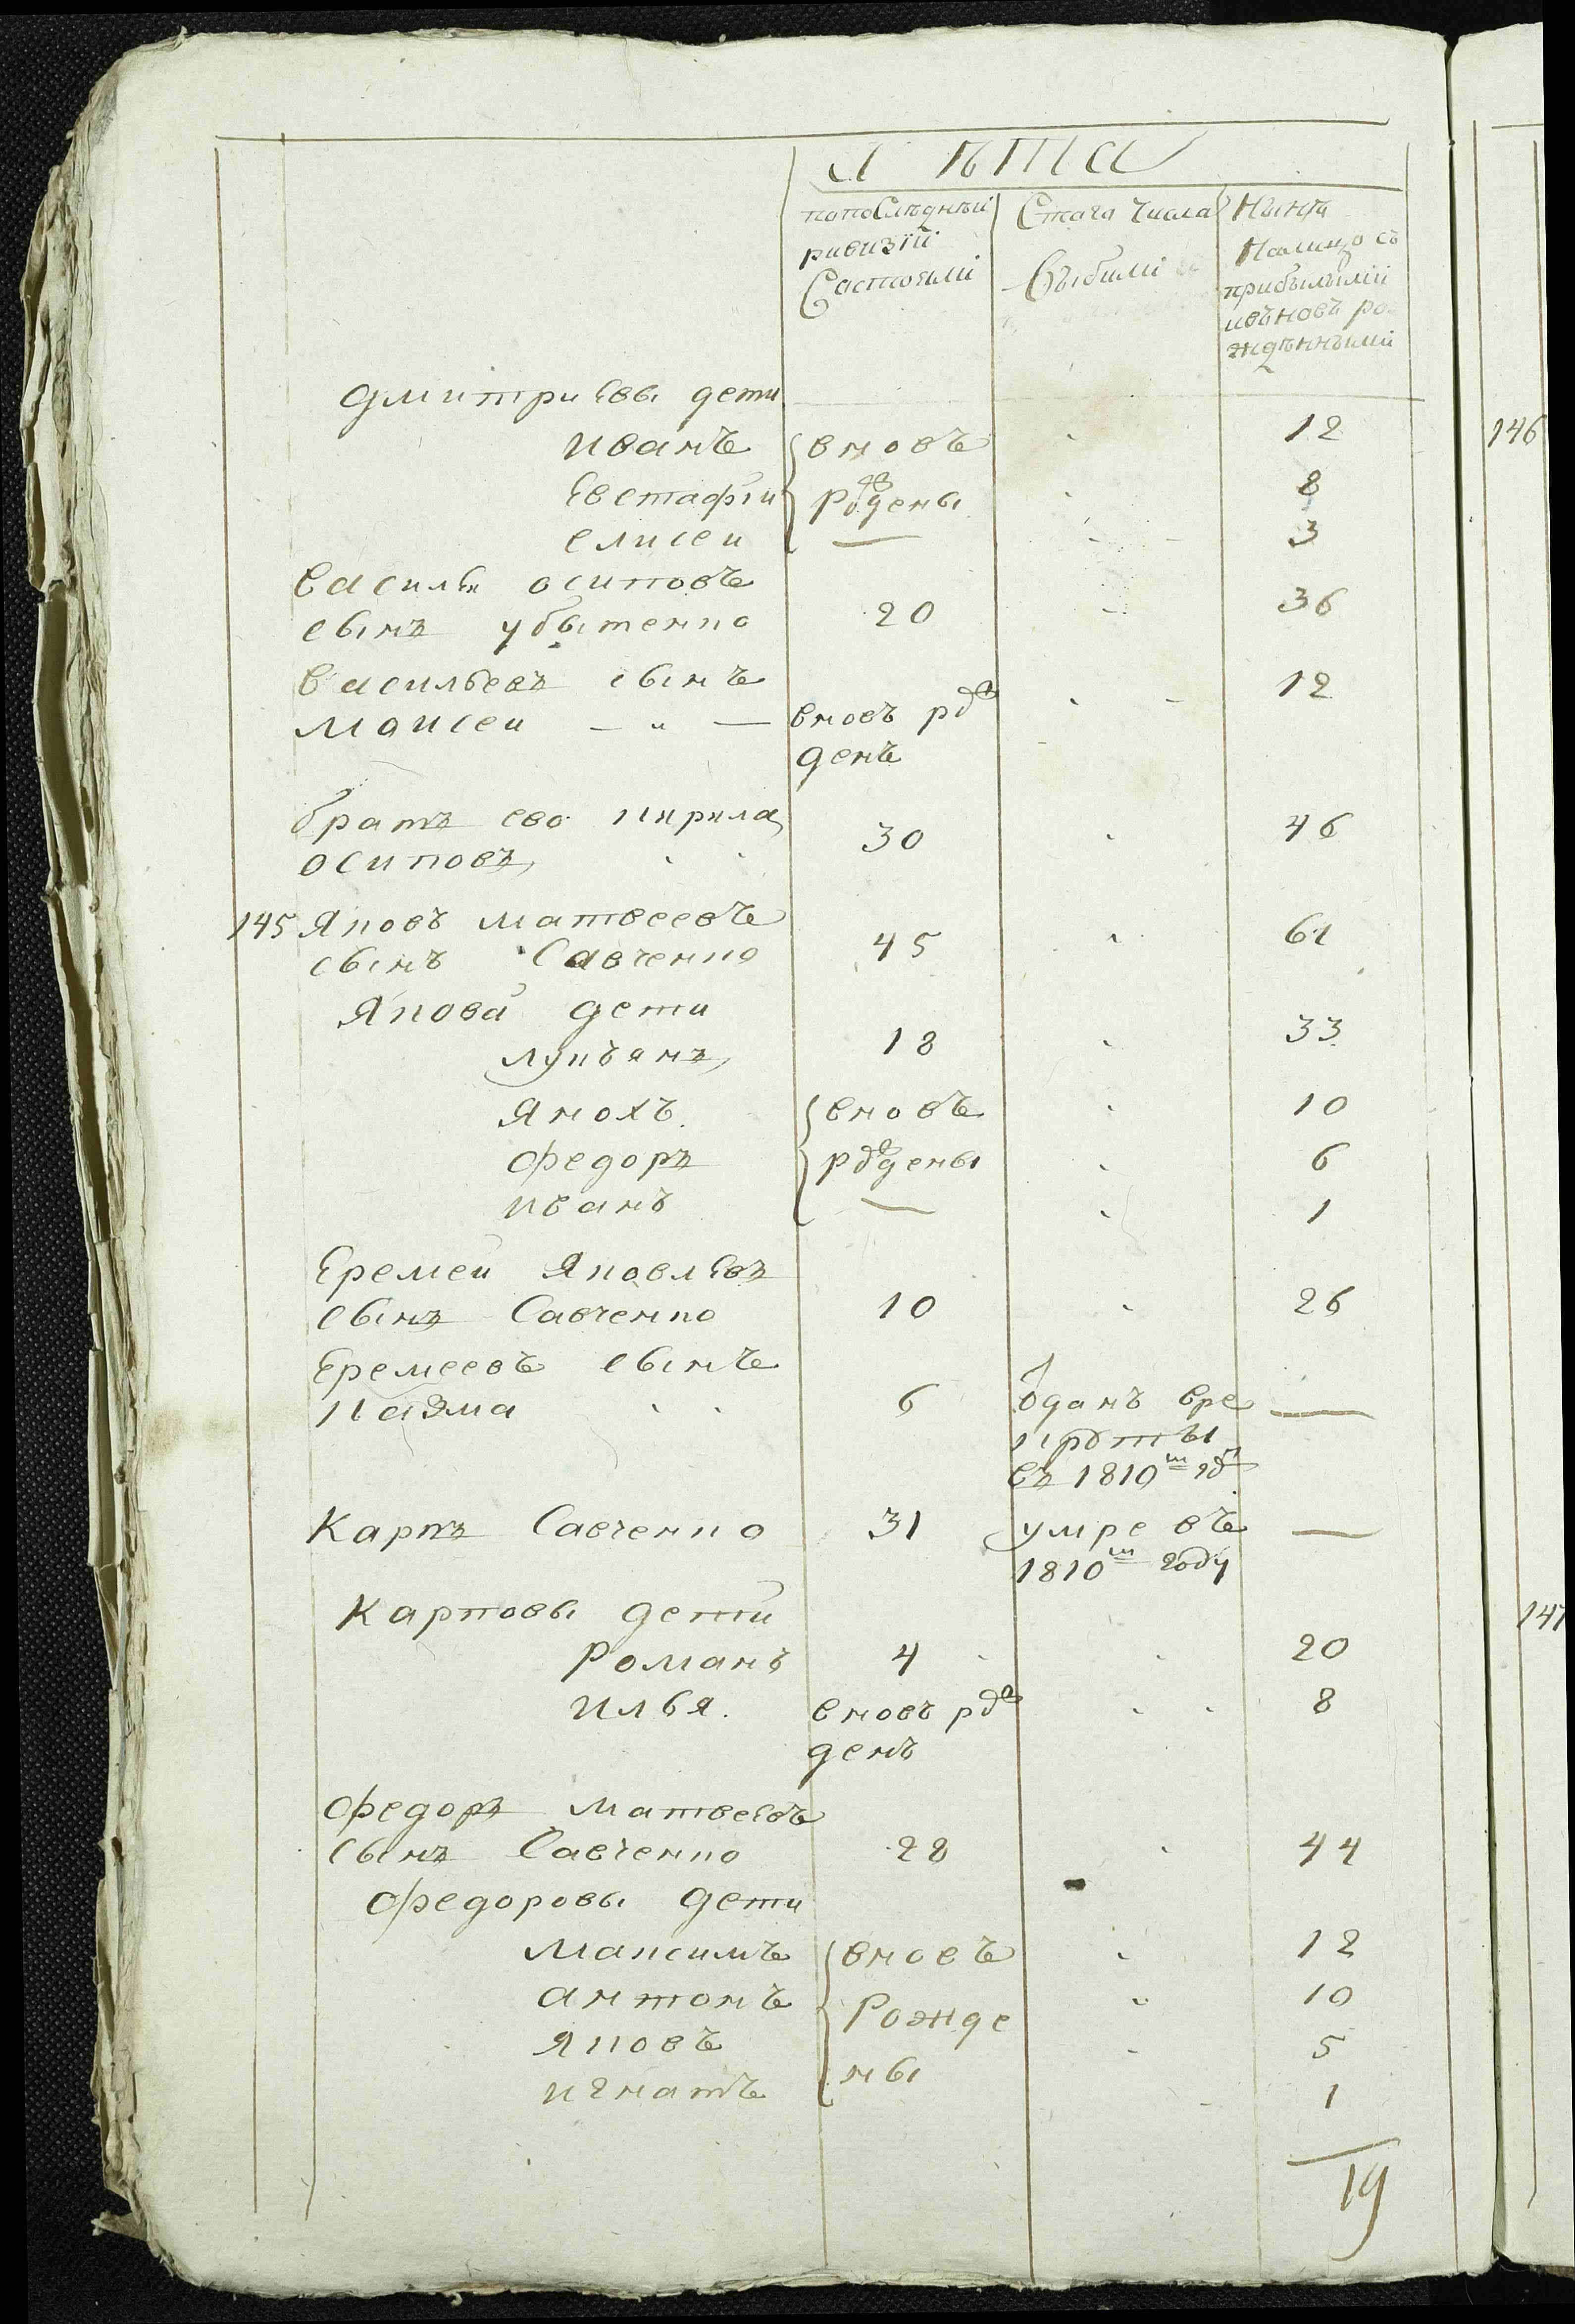 Лѣта
попоследнѣй ривизіи Састояли
Стаго числа Выбыли
Нынѣ Налицо съ прибылыми ивъновъ рожденными
Дмитриевы дети
146
иванъ вновъ 12
Евстафіи рожدены 8
елисеи — 3
Василей осиповъ
сынъ убытенко 20 36
Васильевъ сынъ 12
маисеи — " — вновъ рож
денъ
братъ ево кирила 30 46
осиповъ
145 Яковъ матвеевъ
сынъ Савченко 45 61
Якова дети
лукъянъ 18 33
Янохъ вновъ 10
Федоръ рождены 6
иванъ — 1
Еремей Яковлевъ
сынъ Савченко 10 26
Еремеевъ сынъ
казма 6 одданъ вре —
круты
въ 1810м году
Карпъ Савченко 31 умре въ —
1810м году
147
Карповы дети
Романъ 4 20
Илья вновъ рож 8
денъ
Федоръ матвеевъ
сынъ Савченко 28 44
Федоровы дети
максимъ вновъ 12
антонъ рожде 10
яковъ 5
игнатъ ны 1
19